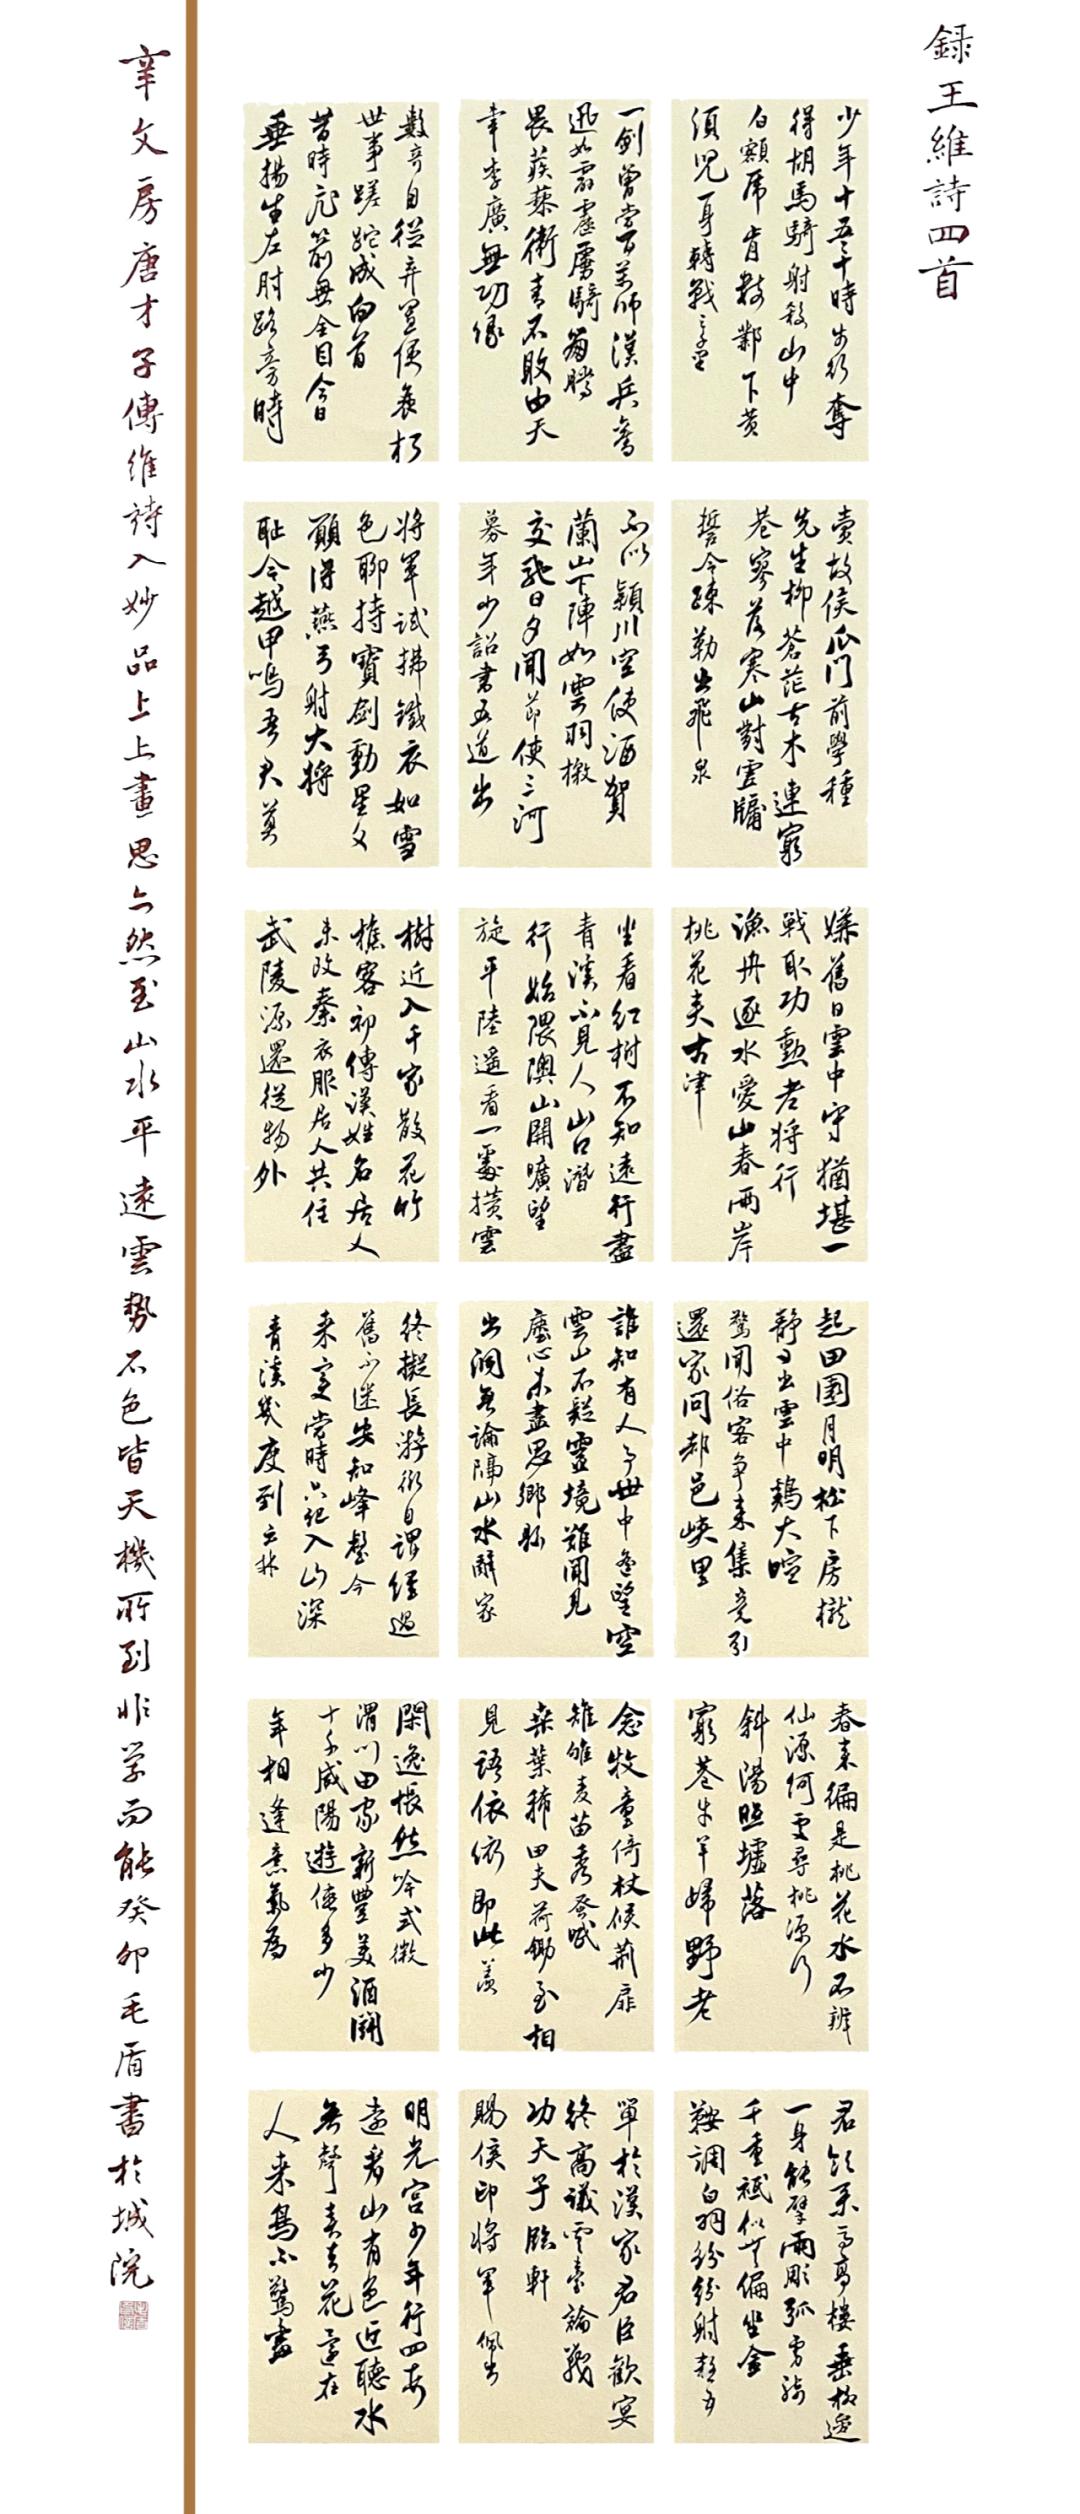 録王維詩四首
少年十五二十時步行奪
得胡馬騎射殺山中
白額虎肯數鄴下黃
須兒一身轉戰三千里
一劍曾當百萬師漢兵奮
迅如霹靂虜騎崩騰
畏蒺藜衛青不敗由天
幸李廣無功緣
數奇自從棄置便衰朽
世事蹉跎成白首
昔時飛箭無全目今日
垂楊生左肘路旁時
賣故侯瓜門前學種
先生柳蒼茫古木連窮
巷寥落寒山對虛牖
誓令疎勒出飛泉
不似穎川空使酒賀
蘭山下陣如雲羽檄
交馳日夕聞節使三河
募年少詔書五道出
將軍試拂鐵衣如雪
色聊持寶劍動星文
願得燕弓射大將
耻令越甲鳴吾君莫
嫌舊日雲中守猶堪一
戰取功勲老將行
漁舟逐水愛山春兩岸
桃花夾古津
坐看紅樹不知遠行盡
青溪不見人山口潛
行始隈隩山開曠望
旋平陸遥看一處攢雲
樹近入千家散花竹
樵客初傳漢姓名居人
未改秦衣服居人共住
武陵源還從物外
起田園月明松下房櫳
靜日出雲中雞犬喧
驚聞俗客爭來集競引
還家問都邑峽里
誰知有人事世中遥望空
雲山不疑靈境難聞見
塵心未盡思鄉縣
出洞無論隔山水辭家
終擬長游衍自謂經過
舊不迷安知峰壑今
來變當時只記入山深
青溪幾度到雲林
春來徧是桃花水不辨
仙源何處尋桃源行
斜陽照墟落
窮巷牛羊歸野老
念牧童倚杖候荆扉
雉雊麥苗秀蠶眠
桑葉稀田夫荷鋤至相
見語依依即此羨
閑逸悵然吟式微
渭川田家新豐美酒鬭
十千咸陽遊俠多少
年相逢意氣為
君飲系馬高樓垂柳邊
一身能擘兩彫弧虜騎
千重衹似無偏坐金
鞍調白羽紛紛射殺五
單於漢家君臣歡宴
終高議雲臺論戰
功天子臨軒
賜侯印將軍佩出
明光宮少年行四首
遠看山有色近聽水
無聲春去花還在
人來鳥不驚畫
辛文房唐才子傳維詩入妙品上上畫思亦然至山水平遠雲勢石色皆天機所到非学而能癸卯毛盾書於城院